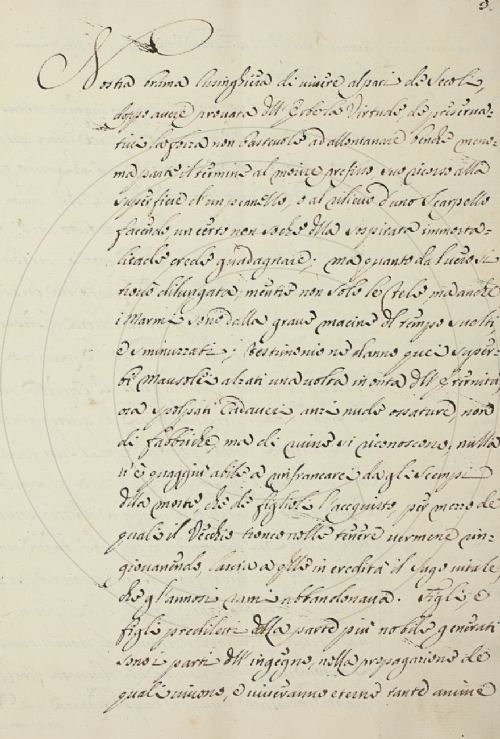 3.
Nostra brama lusinghiera di vivere al pari de Secoli,
doppo avere provata dll' Erbe la Virtude de preserva-
tivi la forza non bastevole ad allontanare benche meno-
ma parte il termine al morire prefisso suo ricorso alla
Superficie d'un pianello, o al rilievo d'uno Scarpello
facendo, un certo non soche dlla sospirata immorta-
litade crede guadagnare; ma quanto da l vero si
trova dilungata, mentre non solo le Tele ma anche
i Marmi sono dalla grave macina dl tempo svolti,
e sminuzzati; Testimonio ne danno quei super-
bi Mausolei alzati una volta in onta dll' Eternità
ora spolpati Cadaveri, anzi nude ossature non
di fabbriche, ma di ruine si riconoscono, nulla
v'è quaggiu abile a rinfrancarci da gli Scempi
dlla morte che de figlioli l'acquisto per mezzo de
quali il Vecchio tronco nelle tenere vermene rin-
giovanendo, lascia a qlle in eredità il Sugo vitale
che gl'annosi rami abbandonava. Figli e
figli prediletti dlla parte piu nobile generati
sono i parti dll' ingegno, nella propagazione de
quali vivono, e viveranno eterne tante anime